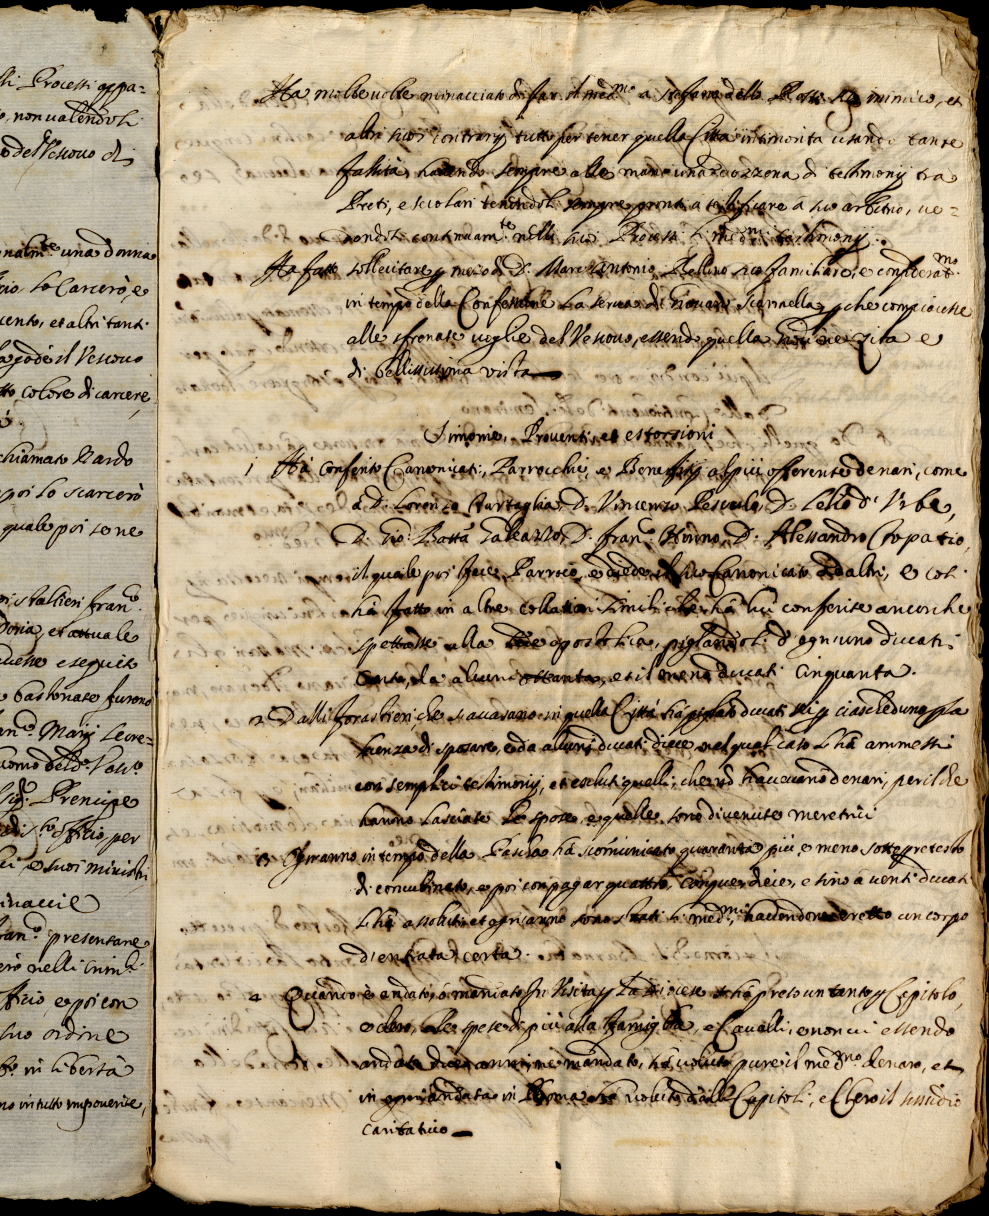 lli Processi appa=
, non valendoli
o del Vescovo di
onalm.te una donna
cio lo Carcerò, e
cento, et altri tanti
la gode il Vescovo
tto colore di carcere
chiamato Nardo
poi lo scarcerò
quale poi se ne
Stalieri fran.o
Doria, et attuale
e seguite
bastonate furono
Marij Leore=
Sig.r Prencipe
officio per
e suoi ministri,
inaccie
fran.o presentare
erò nelli Crim.li
fficio, e poi con
suo ordine
in libertà
no in tutto impoverite,
Ha molte volte minacciato di far il med.mo a Stefano delle Poste suo inimico, et
altri suoi contrarij tutto per tener quella Città intimorita usando tante
falsità, havendo sempre alle mani una dozzena di testimonij tra
Preti, e Scolari tenendoli sempre pronti a testificare a suo arbitrio, ve=
dendosi continuam.te nelli suoi Processi li med.mi testimonij.
Ha fatto sollecitare p mezo di D. Marc'Antonio Bellino suo familiare, e confederat.mo
in tempo della Confessione la serva di Giovanni Scannella, p che compiacesse
alle sfrenate voglie del Vescovo, essendo quella Zita e
di bellissima vista
Simonie, Proventi, et estorsioni
1 Hà conferito Canonicati, Parrocchie, e Beneficij al più offerente denari, come
a D. Lorenzo Curtaglia, D. Vincenzo Pescula, D. Lelio d' Urbe,
D. Gio: Batta Galeazzo, D. fran.o Ninno, D. Alessandro Copatio,
il quale poi fece Parroco, e diede il suo Canonicato ad altri, e cosi
hà fatto in altre collationi simili che hà lui conferite ancorche
spettasse alla Sede apostolica, pigliandoli d'ogn'uno ducati
Cento, da alcuni ottanta, et il meno ducati Cinquanta.
2 Dalli forastieri, che si accasano in quella Città hà pigliato ducati sei p ciascheduno p la
licenza di sposare, e da alcuni ducati diece nel qual caso l'hà ammessi
con semplici testimonij, et esclusi quelli, che nò haveano denari, per il che
hanno lasciate le spose, e quelle sono divenute meretrici
3 Ogn'anno in tempo della Pascha hà scomunicato quaranta più, e meno sotto pretesto
di concubinato, e poi con pagar quattro, cinque, diece, e sino a venti ducati
l'hà assoluti, et ogn'anno sono stati li med.mi havendone eretto un corpo
d'entrata certa.
4 Quando è andato, ò mandato In Visita p la Diocese hà preso un tanto p Capitolo,
e clero, le spese di più alla famiglia, e Cavalli, e non ci essendo
andato diece anni ne mandato, hà voluto pure il med.mo denaro, et
in ogni andata in Roma hà voluto dalli Capitoli, e Clero il sussidio
caritativo